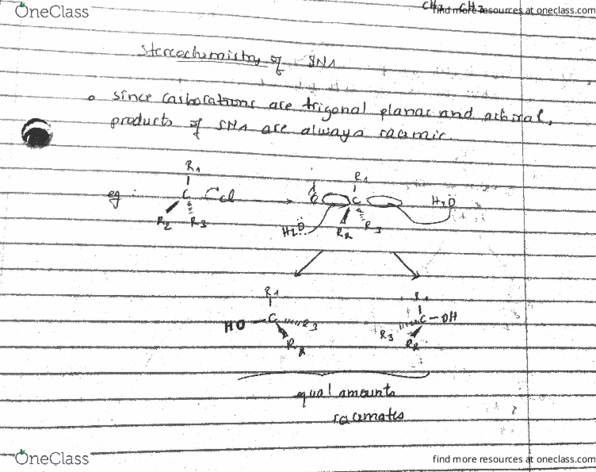 OneClass
CH3 CH3
find more resources at oneclass.com
Stereochemistry of SN1
• since carbocations are trigonal planar and achiral,
products of SN1 are always racemic.
eg:
R1
C Cl
R2 R3
R1
C
R2 R3
H2Ö
H2Ö
R1
HO C R3
R2
R1
C-OH
R3 R2
equal amounts
racemates
OneClass
find more resources at oneclass.com